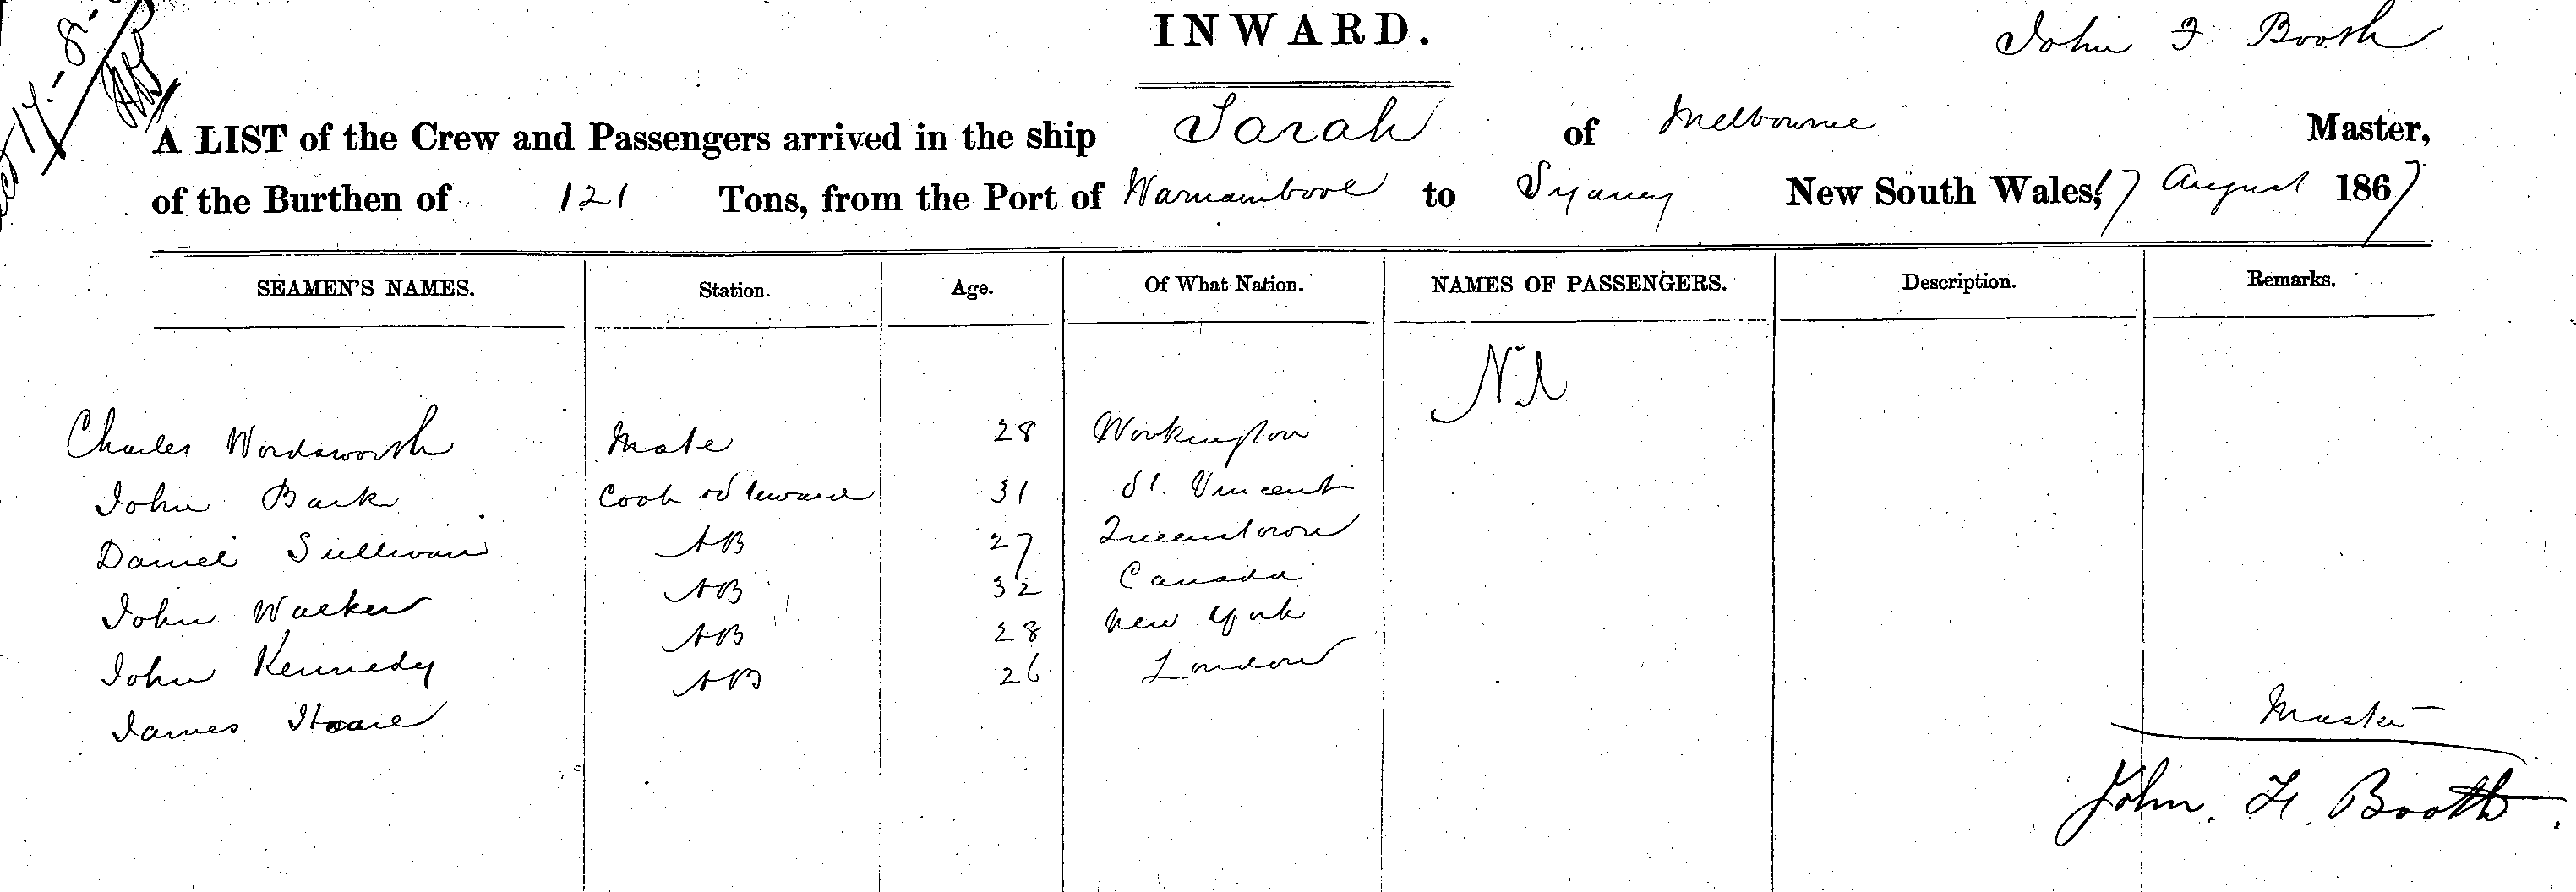 INWARD.
John F. Booth
A LIST of the Crew and Passengers arrived in the ship Sarah of Melbourne Master,
of the Burthen of 121 Tons, from the Port of Warnambool to Sydney New South Wales, 17 August 1867
SEAMEN'S NAMES. Station. Age. Of What Nation. NAMES OF PASSENGERS. Description. Remarks.
Nil
Charles Wordsworth Mate 28 Workington
John Bark Cook & Steward 31 St. Vincent
Daniel Sullivan AB 27 Queenstown
John Walker AB 32 Canada
John Kennedy AB 28 New York
James Hoare AB 26 London
Master
John. F. Booth.